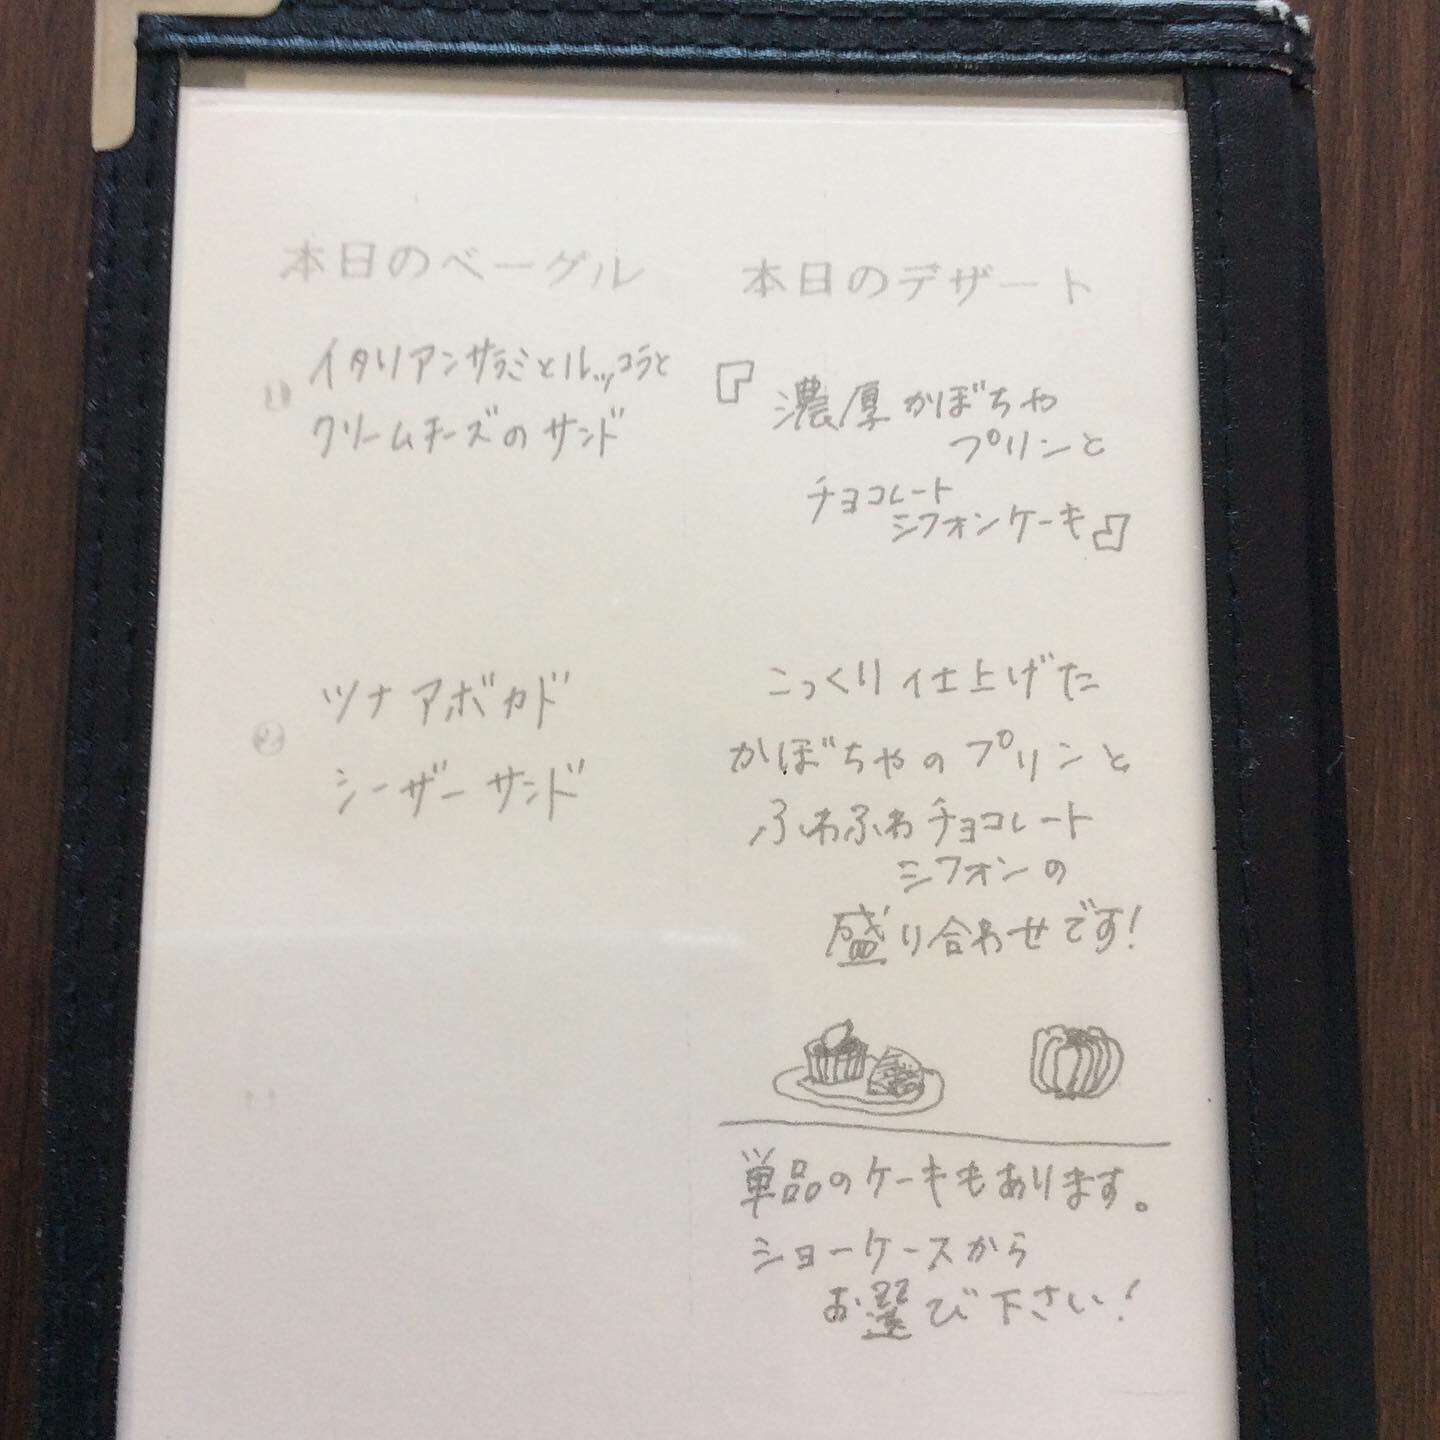 本日のベーグル
① イタリアンサラミとルッコラと
クリームチーズのサンド
② ツナアボカド
シーザーサンド
本日のデザート
『濃厚かぼちゃ
プリンと
チョコレート
シフォンケーキ』
こっくり仕上げた
かぼちゃのプリンと
ふわふわチョコレート
シフォンの
盛り合わせです!
単品のケーキもあります。
ショーケースから
お選び下さい!